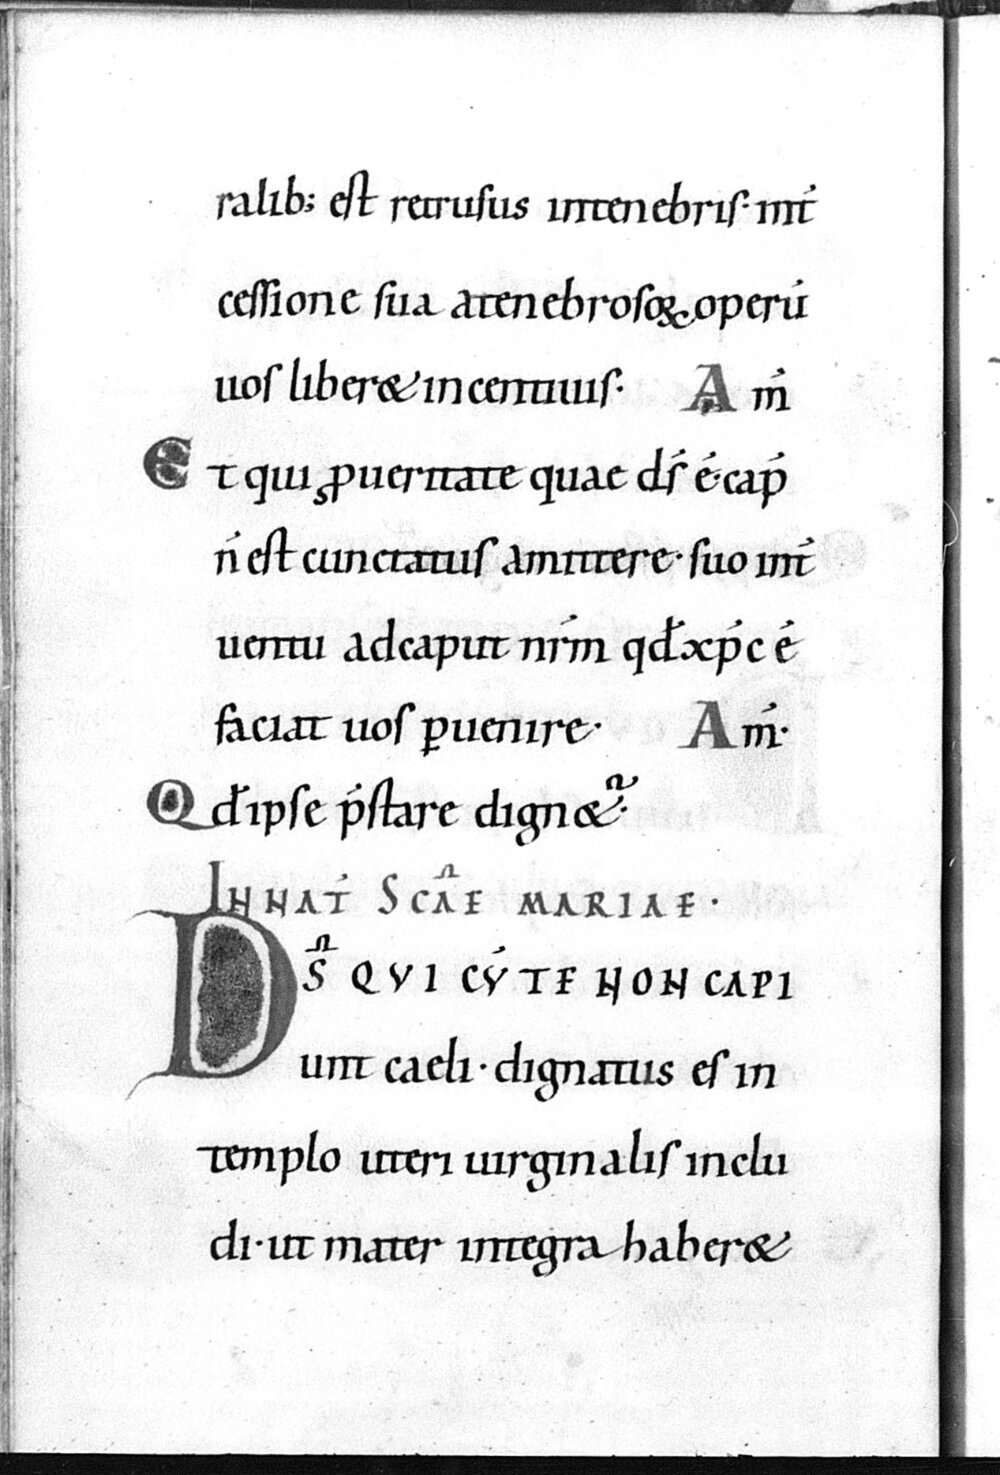 ralib; est retrusus intenebris· int̅
cessione sua atenebrosoꝝ operū
uos liber& incentiuis· A m̅
Et qui ꝓ ueritate quae ds̅ ē· cap̅
n̅ est cunctatus amittere· suo int̅
uentu ad caput nr̅m qđ xp̅c ē
faciat uos ꝑuenire· A m̅·
Qđ ipse p̅stare dign&̅·
IN NAT̅ SCAE̅ MARIAE·
DS̅ QVI CV̅ TE NON CAPI
unt caeli· dignatus es in
templo uteri uirginalis inclu
di· ut mater integra haber&